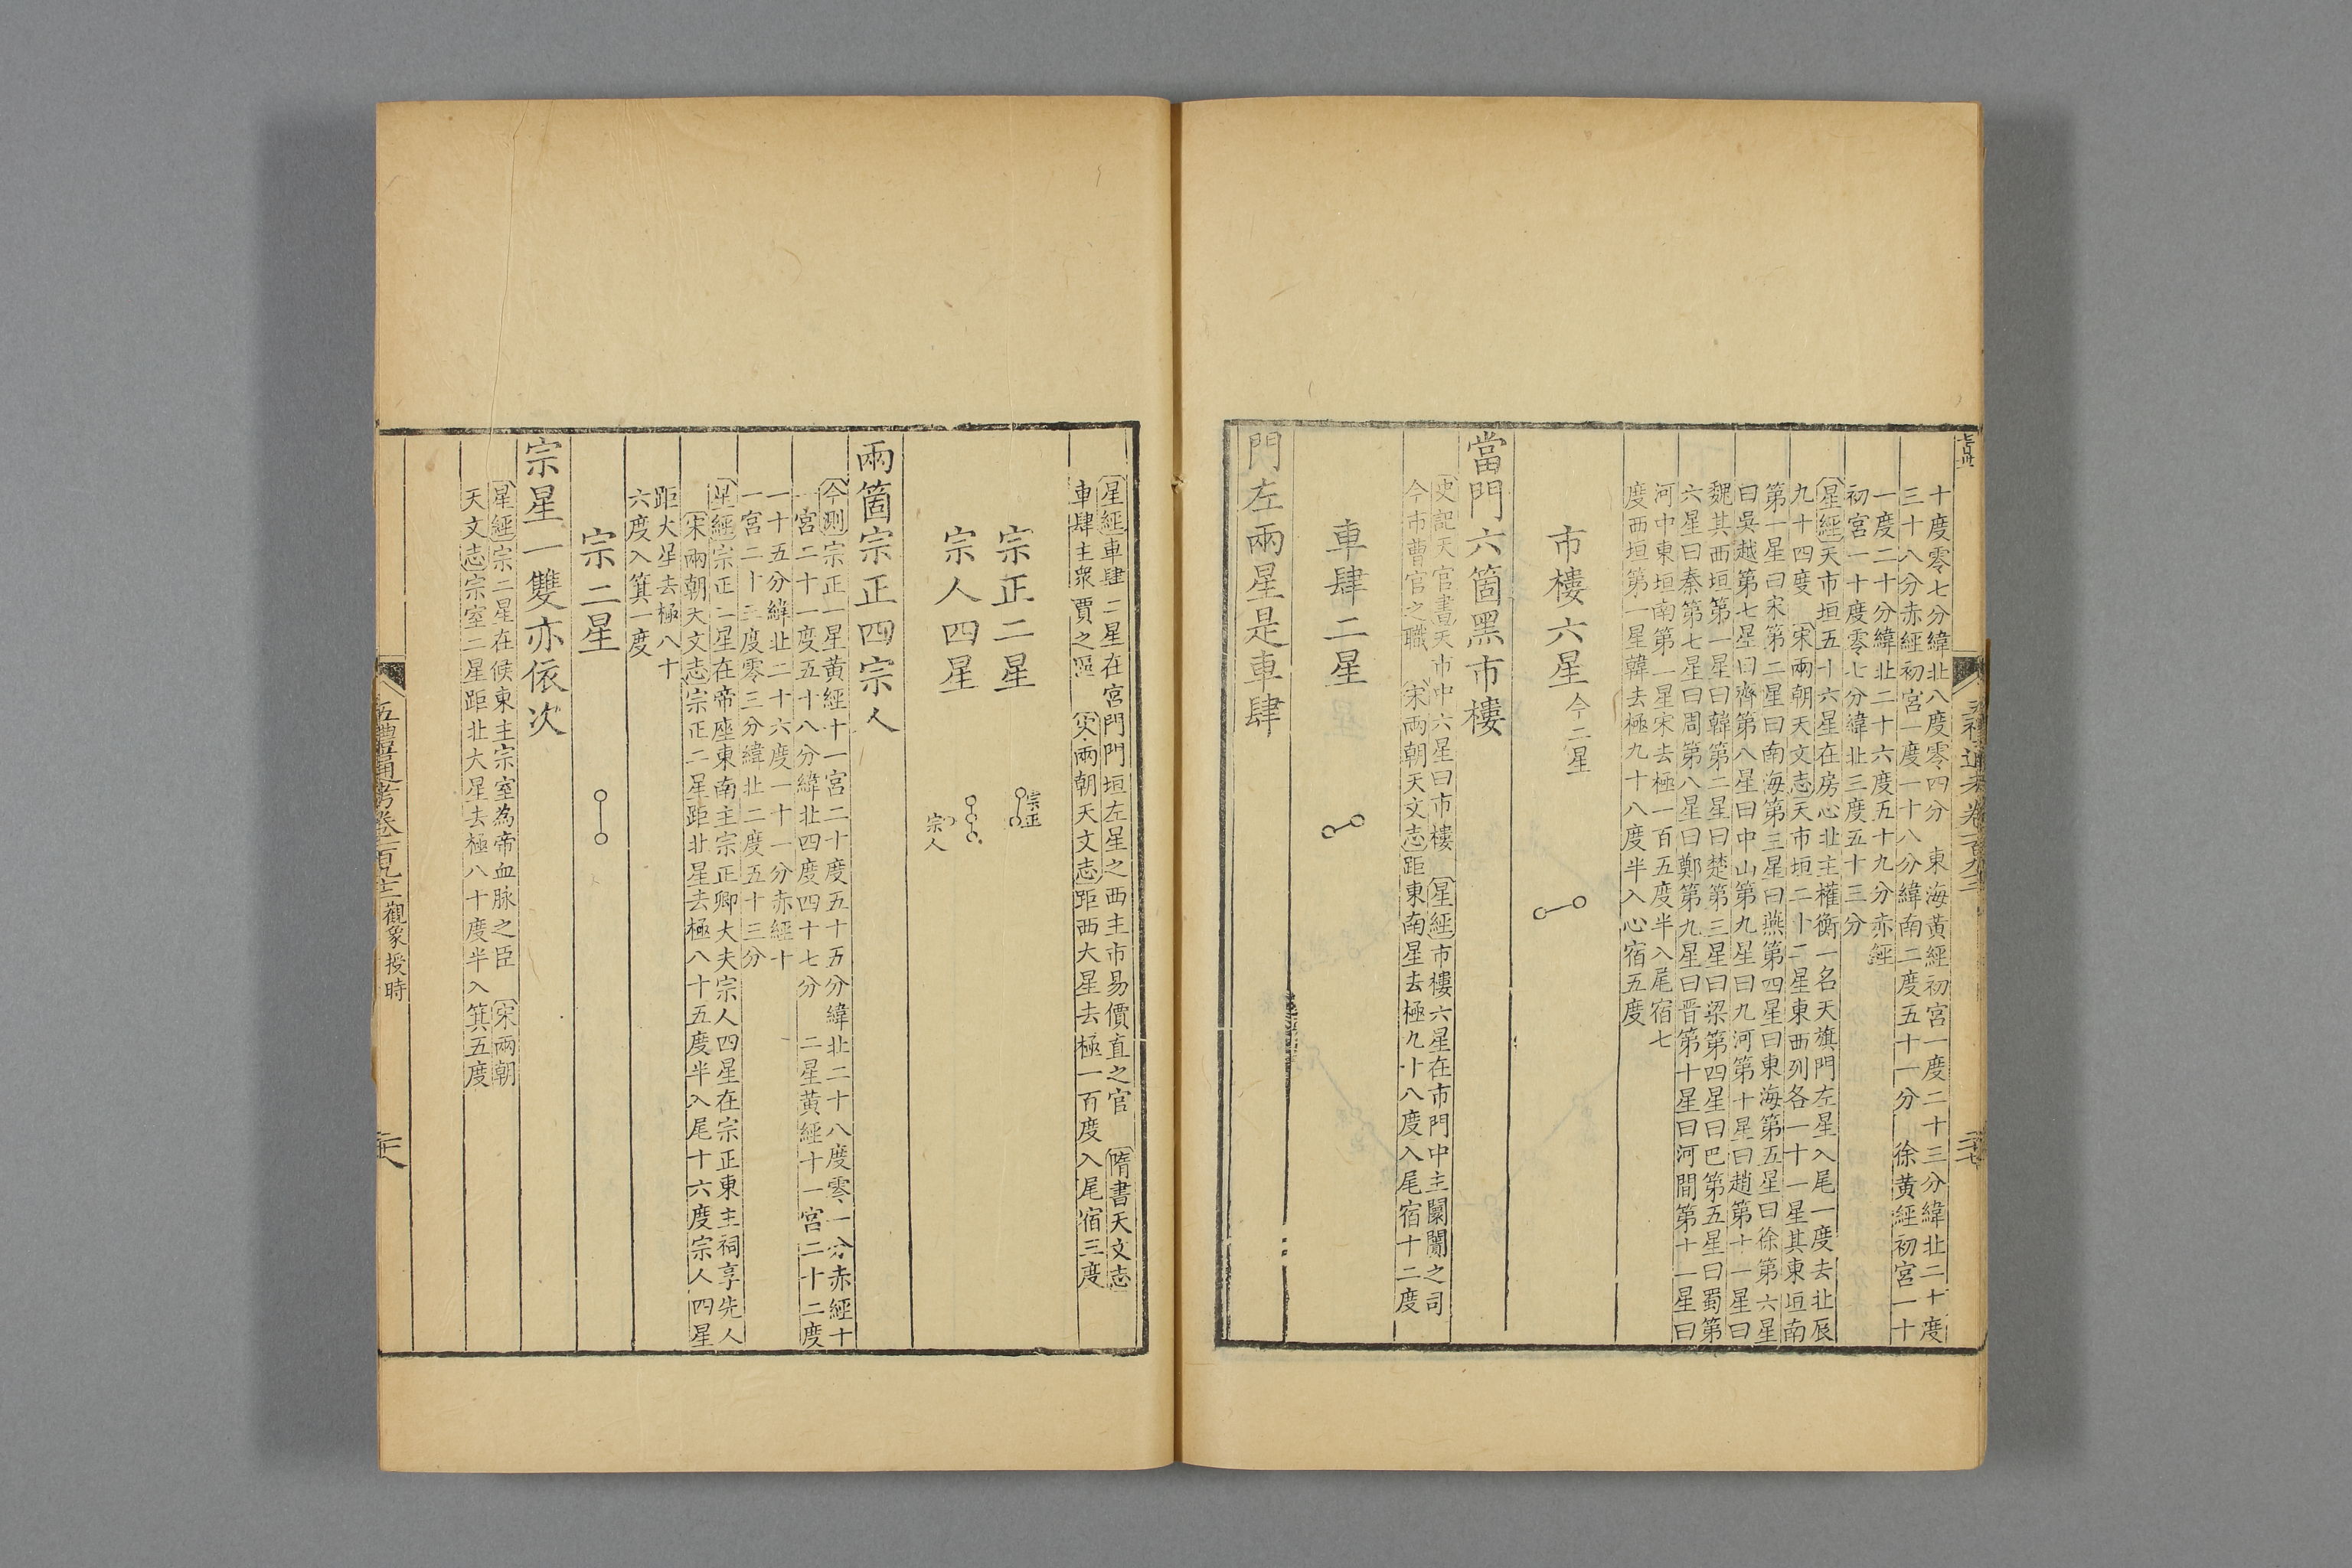 十度零七分緯北八度零四分 東海黃經初宮一度二十三分緯北二十度
三十八分赤經初宮一度一十八分緯南二度五十一分 徐黃經初宮一十
一度二十分緯北二十六度五十九分赤經
初宮一十度零七分緯北三度五十三分
星經天市垣五十六星在房心北主權衡一名天旗門左星入尾一度去北辰
九十四度 宋兩朝天文志天市垣二十二星東西列各一十一星其東垣南
第一星曰宋第二星曰南海第三星曰燕第四星曰東海第五星曰徐第六星
曰吳越第七星曰齊第八星曰中山第九星曰九河第十星曰趙第十一星曰
魏其西垣第一星曰韓第二星曰楚第三星曰梁第四星曰巴第五星曰蜀第
六星曰秦第七星曰周第八星曰鄭第九星曰晋第十星曰河間第十一星曰
河中東垣南第一星宋去極一百五度半入尾宿七
度西垣第一星韓去極九十八度半入心宿五度
市樓六星 今二星
當門六箇黑市樓
史記天官書天市中六星曰市樓 星經市樓六星在市門中主闤闠之司
今市曹官之職 宋兩朝天文志距東南星去極九十八度入尾宿十二度
車肆二星
門左兩星是車肆
星經車肆二星在宮門門垣左星之西主市易價直之官 隋書天文志
車肆主衆賈之區 宋兩朝天文志距西大星去極一百度入尾宿三度
宗正二星
宗正
宗人四星
宗人
兩箇宗正四宗人
今測宗正一星黃經十一宮二十度五十五分緯北二十八度零一分赤經十
一宮二十一度五十八分緯北四度四十七分 二星黃經十一宮二十二度
一十五分緯北二十六度一十一分赤經十
一宮二十三度零三分緯北二度五十三分
星經宗正二星在帝座東南主宗正卿大夫宗人四星在宗正東主祠享先人
宋兩朝天文志宗正二星距北星去極八十五度半入尾十六度宗人四星
距大星去極八十
六度入箕一度
宗二星
宗星一雙亦依次
星經宗二星在候東主宗室為帝血脉之臣 宋兩朝
天文志宗室二星距北大星去極八十度半入箕五度
五禮通考卷一百九十二 觀象授時